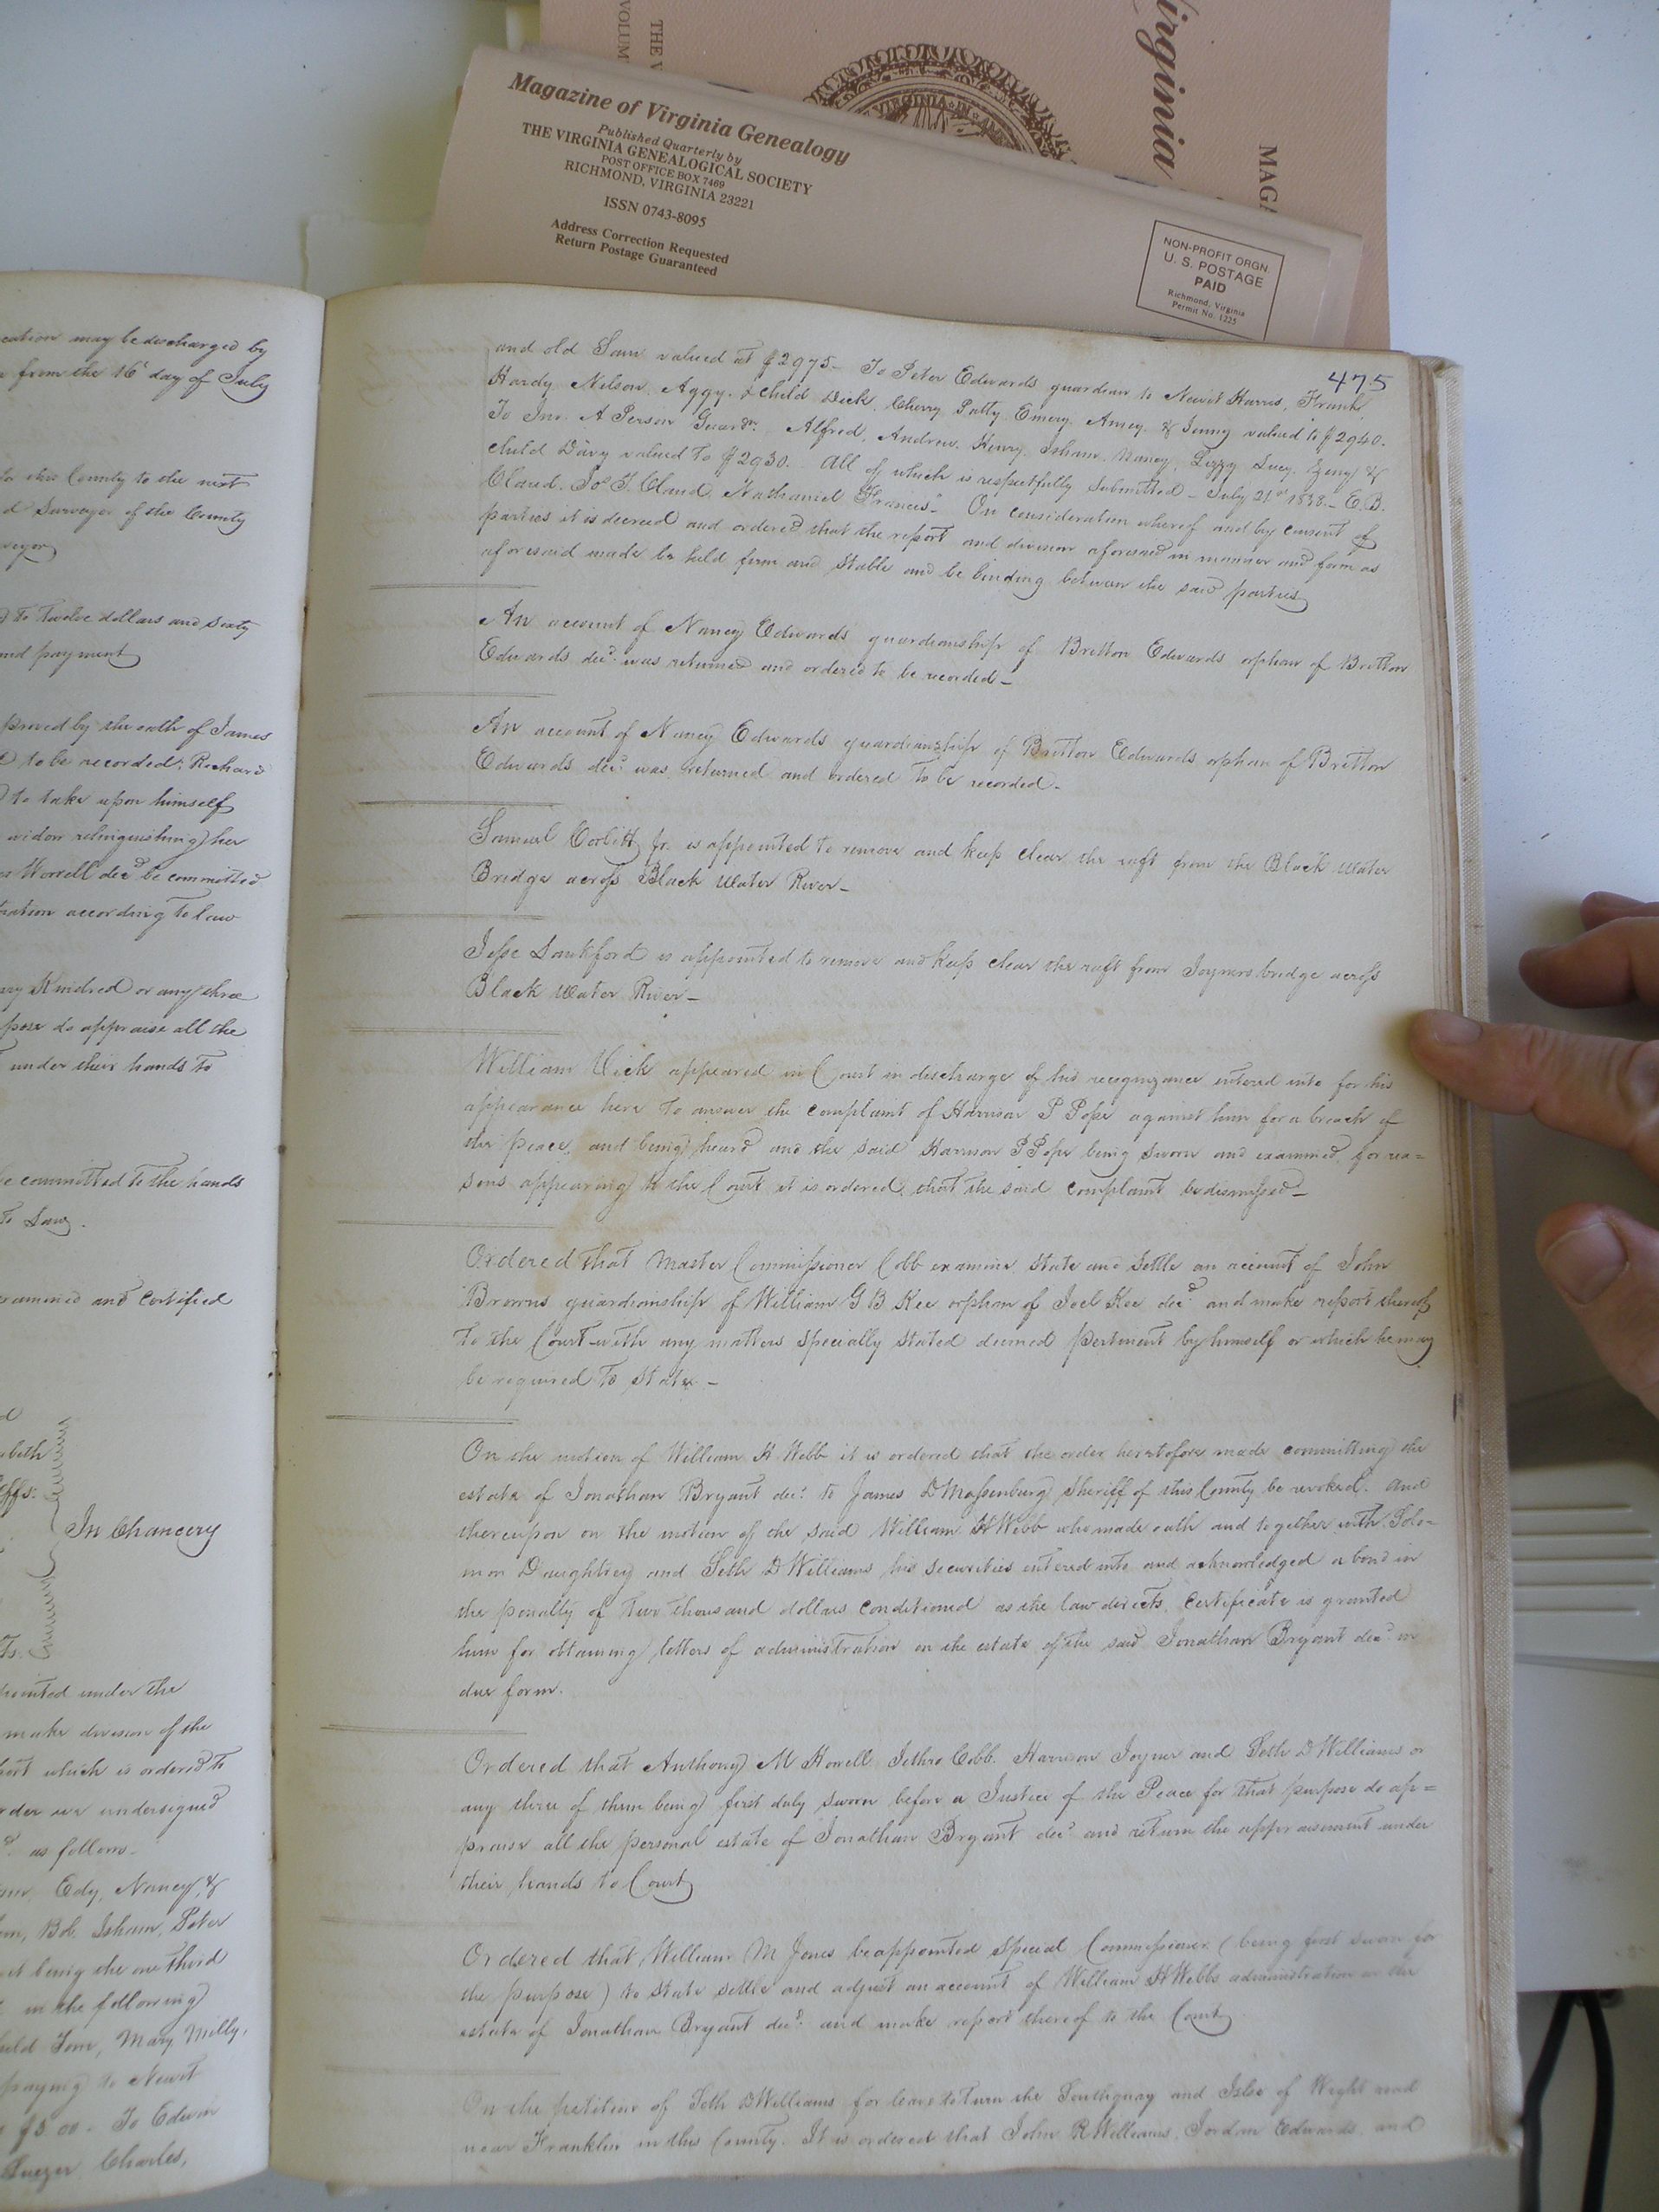 THE V
VOLUM
Virginia
MAGA
VIRGINIA IN
Magazine of Virginia Genealogy
Published Quarterly by
THE VIRGINIA GENEALOGICAL SOCIETY
POST OFFICE BOX 7469
RICHMOND, VIRGINIA 23221
ISSN 0743-8095
Address Correction Requested
Return Postage Guaranteed
NON-PROFIT ORGN.
U. S. POSTAGE
PAID
Richmond, Virginia
Permit No. 1225
cation may be discharged by
from the 16 day of July
this County to the next
d Surveyor of the County
to Twelve dollars and sixty
and payment
proved by the oath of James
to be recorded. Richard
to take upon himself
widow relinquishing her
Worrell decd be committed
tration according to law
ry Kindred or any three
pose do appraise all the
under their hands to
be committed to the hands
to Law.
examined and Certified
In Chancery
pointed under the
make division of the
port which is ordered to
order we undersigned
as follows.
Edy, Nancy, &
Bob, Isham, Peter
being the one third
in the following
child Tom, Mary, Milly,
paying to Newit
$5 00 - To Edwin
Charles,
475
and old Sam valued at $2975- To Peter Edwards guardian to Newit Harris, Frank,
Hardy, Nelson, Aggy, & child Dick, Cherry, Patty, Emery, Amey, & Jenny valued to $2940.
To Jno. A Person Guardn. Alfred, Andrew, Henry, Isham, Nancy, Lizzy, Lucy, &
child Davy valued to $2930. All of which is respectfully Submitted - July 21st 1838 - E. B.
Claud, Jos T. Claud, Nathaniel Francis" - On consideration whereof and by consent of
parties it is decreed and ordered that the report and division aforesaid in manner and form as
aforesaid made be held firm and stable and be binding between the said parties
An account of Nancy Edwards guardianship of Britton Edwards orphan of Britton
Edwards decd. was returned and ordered to be recorded -
An account of Nancy Edwards guardianship of Britton Edwards orphan of Britton
Edwards decd. was returned and ordered to be recorded -
Samuel Corbitt Jr. is appointed to remove and keep clear the raft from the Black Water
Bridge across Black Water River -
Jesse Lankford is appointed to remove and keep clear the raft from Joyners bridge across
Black Water River -
William Vick appeared in Court in discharge of his recognizance entered into for his
appearance here to answer the complaint of Harrison P Pope against him for a breach of
the peace, and being heard and the said Harrison P Pope being sworn and examined, for rea=
sons appearing to the Court it is ordered that the said complaint be dismissed -
Ordered that Master Commissioner Cobb examine State and Settle an account of John
Browns guardianship of William G B Kee orphan of Joel Kee decd. and make report thereof
to the Court with any matters specially stated deemed pertinent by himself or which he may
be required to State -
On the motion of William H Webb it is ordered that the order heretofore made committing the
estate of Jonathan Bryant decd. to James D Massenburg Sheriff of this County be revoked. And
thereupon on the motion of the said William H Webb who made oath and together with Solo=
mon Daughtrey and Seth D Williams his securities entered into and acknowledged a bond in
the penalty of Two thousand dollars conditioned as the law directs, Certificate is granted
him for obtaining letters of administration on the estate of the said Jonathan Bryant decd. in
due form.
Ordered that Anthony M Howell, Jethro Cobb, Harrison Joyner and Seth D Williams or
any three of them being first duly sworn before a Justice of the Peace for that purpose do ap=
praise all the personal estate of Jonathan Bryant decd. and return the appraisement under
their hands to Court
Ordered that William M Jones be appointed Special Commissioner (being first sworn for
the purpose) to state settle and adjust an account of William H Webbs administration on the
estate of Jonathan Bryant decd. and make report thereof to the Court
On the petition of Seth D Williams for leave to turn the Southquay and Isle of Wight road
near Franklin in this County. It is ordered that John R Williams, Jordan Edwards, and